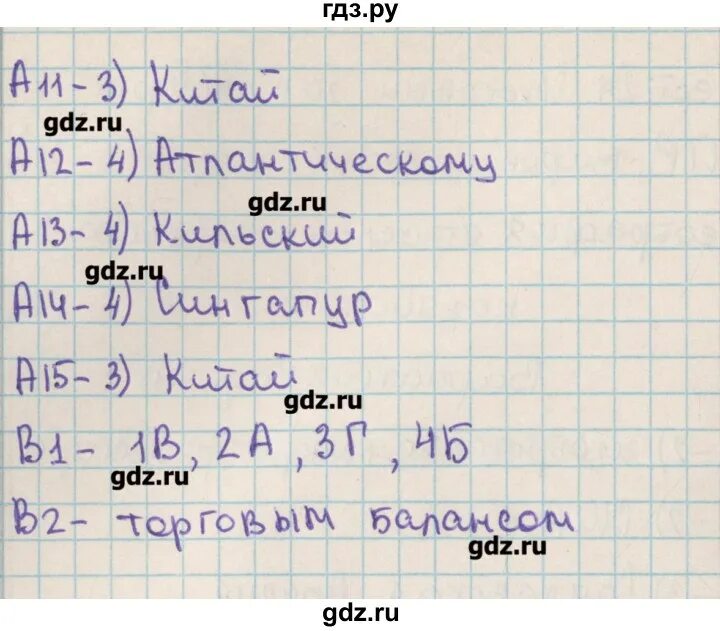 гдз.ру
А11-3) Китай
gdz.ru
А12-4) Атлантическому
gdz.ru
А13-4) Кильский
gdz.ru
А14-4) Сингапур
А15-3) Китай
gdz.ru
В1- 1В, 2А, 3Г, 4Б
gdz.ru
В2- торговым балансом
gdz.ru
gdz.ru